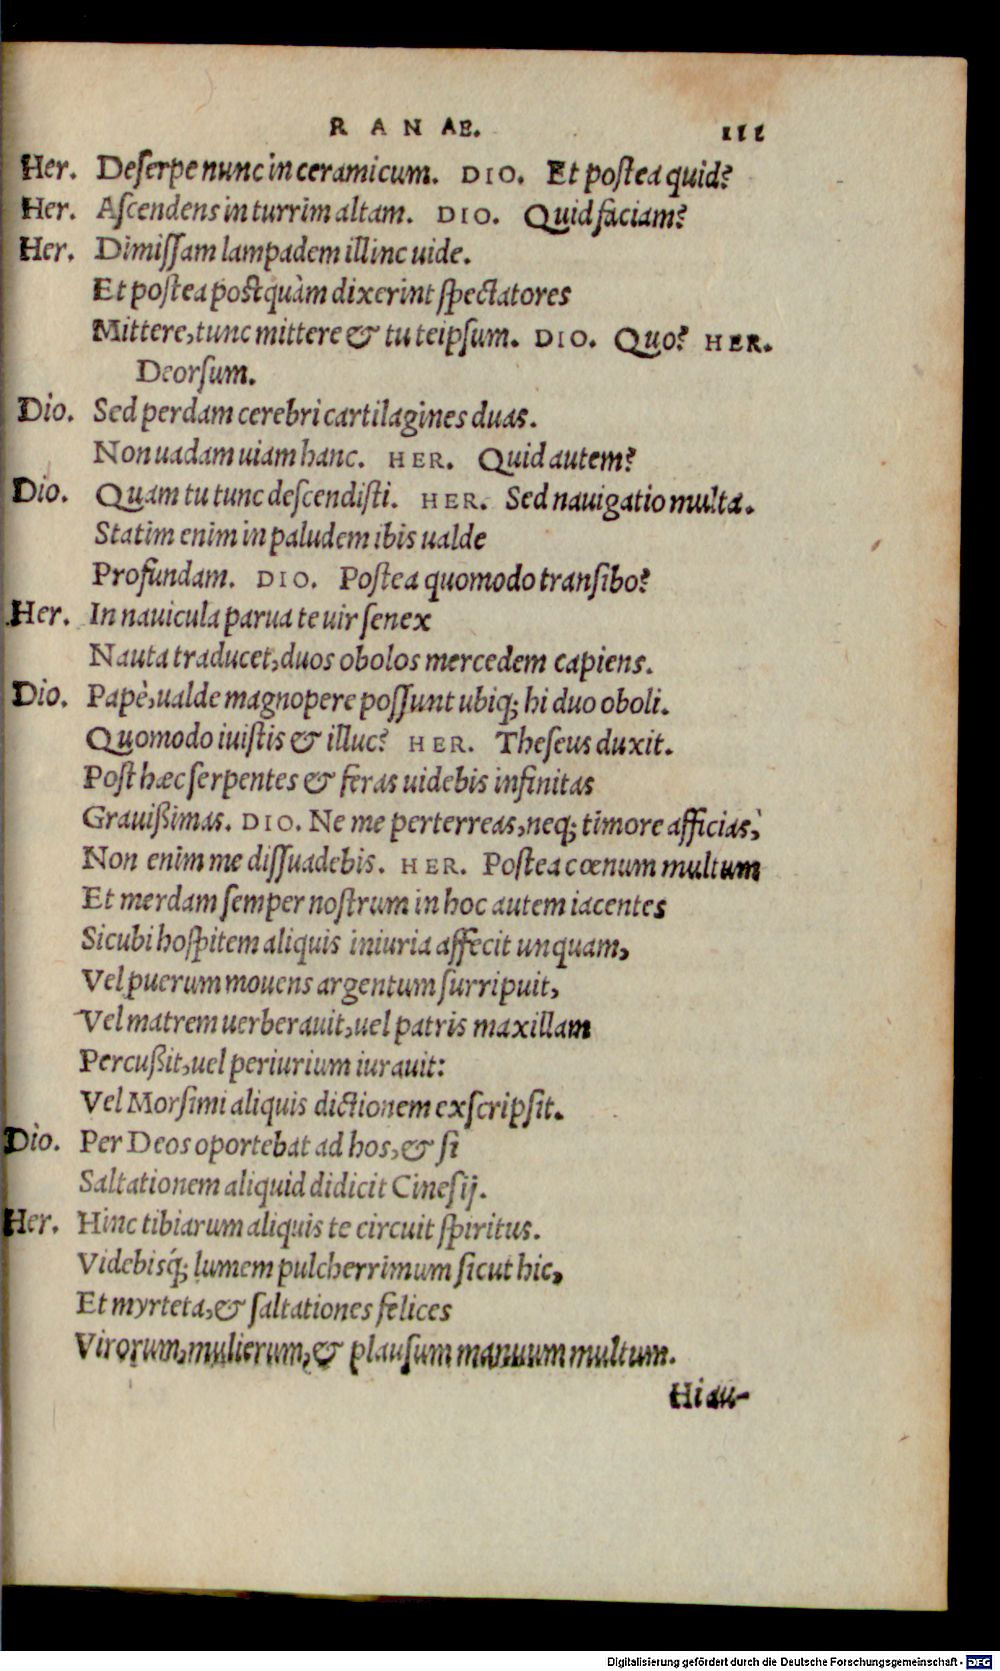 R A N AE. 111
Her. Deſerpe nunc in ceramicum. DIO. Et poſtea quid?
Her. Aſcendens in turrim altam. DIO. Quid faciam?
Her. Dimiſſam lampadem illinc uide.
Et poſtea poſtquàm dixerint ſpectatores
Mittere, tunc mittere & tu teipſum. DIO. Quo? HER.
Deorſum.
Dio. Sed perdam cerebri cartilagines duas.
Non uadam uiam hanc. HER. Quid autem?
Dio. Quam tu tunc deſcendiſti. HER. Sed nauigatio multa.
Statim enim in paludem ibis ualde
Profundam. DIO. Poſtea quomodo tranſibo?
Her. In nauicula parua te uir ſenex
Nauta traducet, duos obolos mercedem capiens.
Dio. Papè, ualde magnopere poſſunt ubiq; hi duo oboli.
Quomodo iuiſtis & illuc? HER. Theſeus duxit.
Poſt hæc ſerpentes & feras uidebis infinitas
Grauißimas. DIO. Ne me perterreas, neq; timore afficias,
Non enim me diſſuadebis. HER. Poſtea cœnum multum
Et merdam ſemper noſtrum in hoc autem iacentes
Sicubi hoſpitem aliquis iniuria affecit unquam,
Vel puerum mouens argentum ſurripuit,
Vel matrem uerberauit, uel patris maxillam
Percußit, uel periurium iurauit:
Vel Morſimi aliquis dictionem exſcripſit.
Dio. Per Deos oportebat ad hos, & ſi
Saltationem aliquid didicit Cineſij.
Her. Hinc tibiarum aliquis te circuit ſpiritus.
Videbisq́; lumem pulcherrimum ſicut hic,
Et myrteta, & ſaltationes felices
Virorum, mulierum, & plauſum manuum multum.
Hiau-
Digitalisierung gefördert durch die Deutsche Forschungsgemeinschaft - DFG